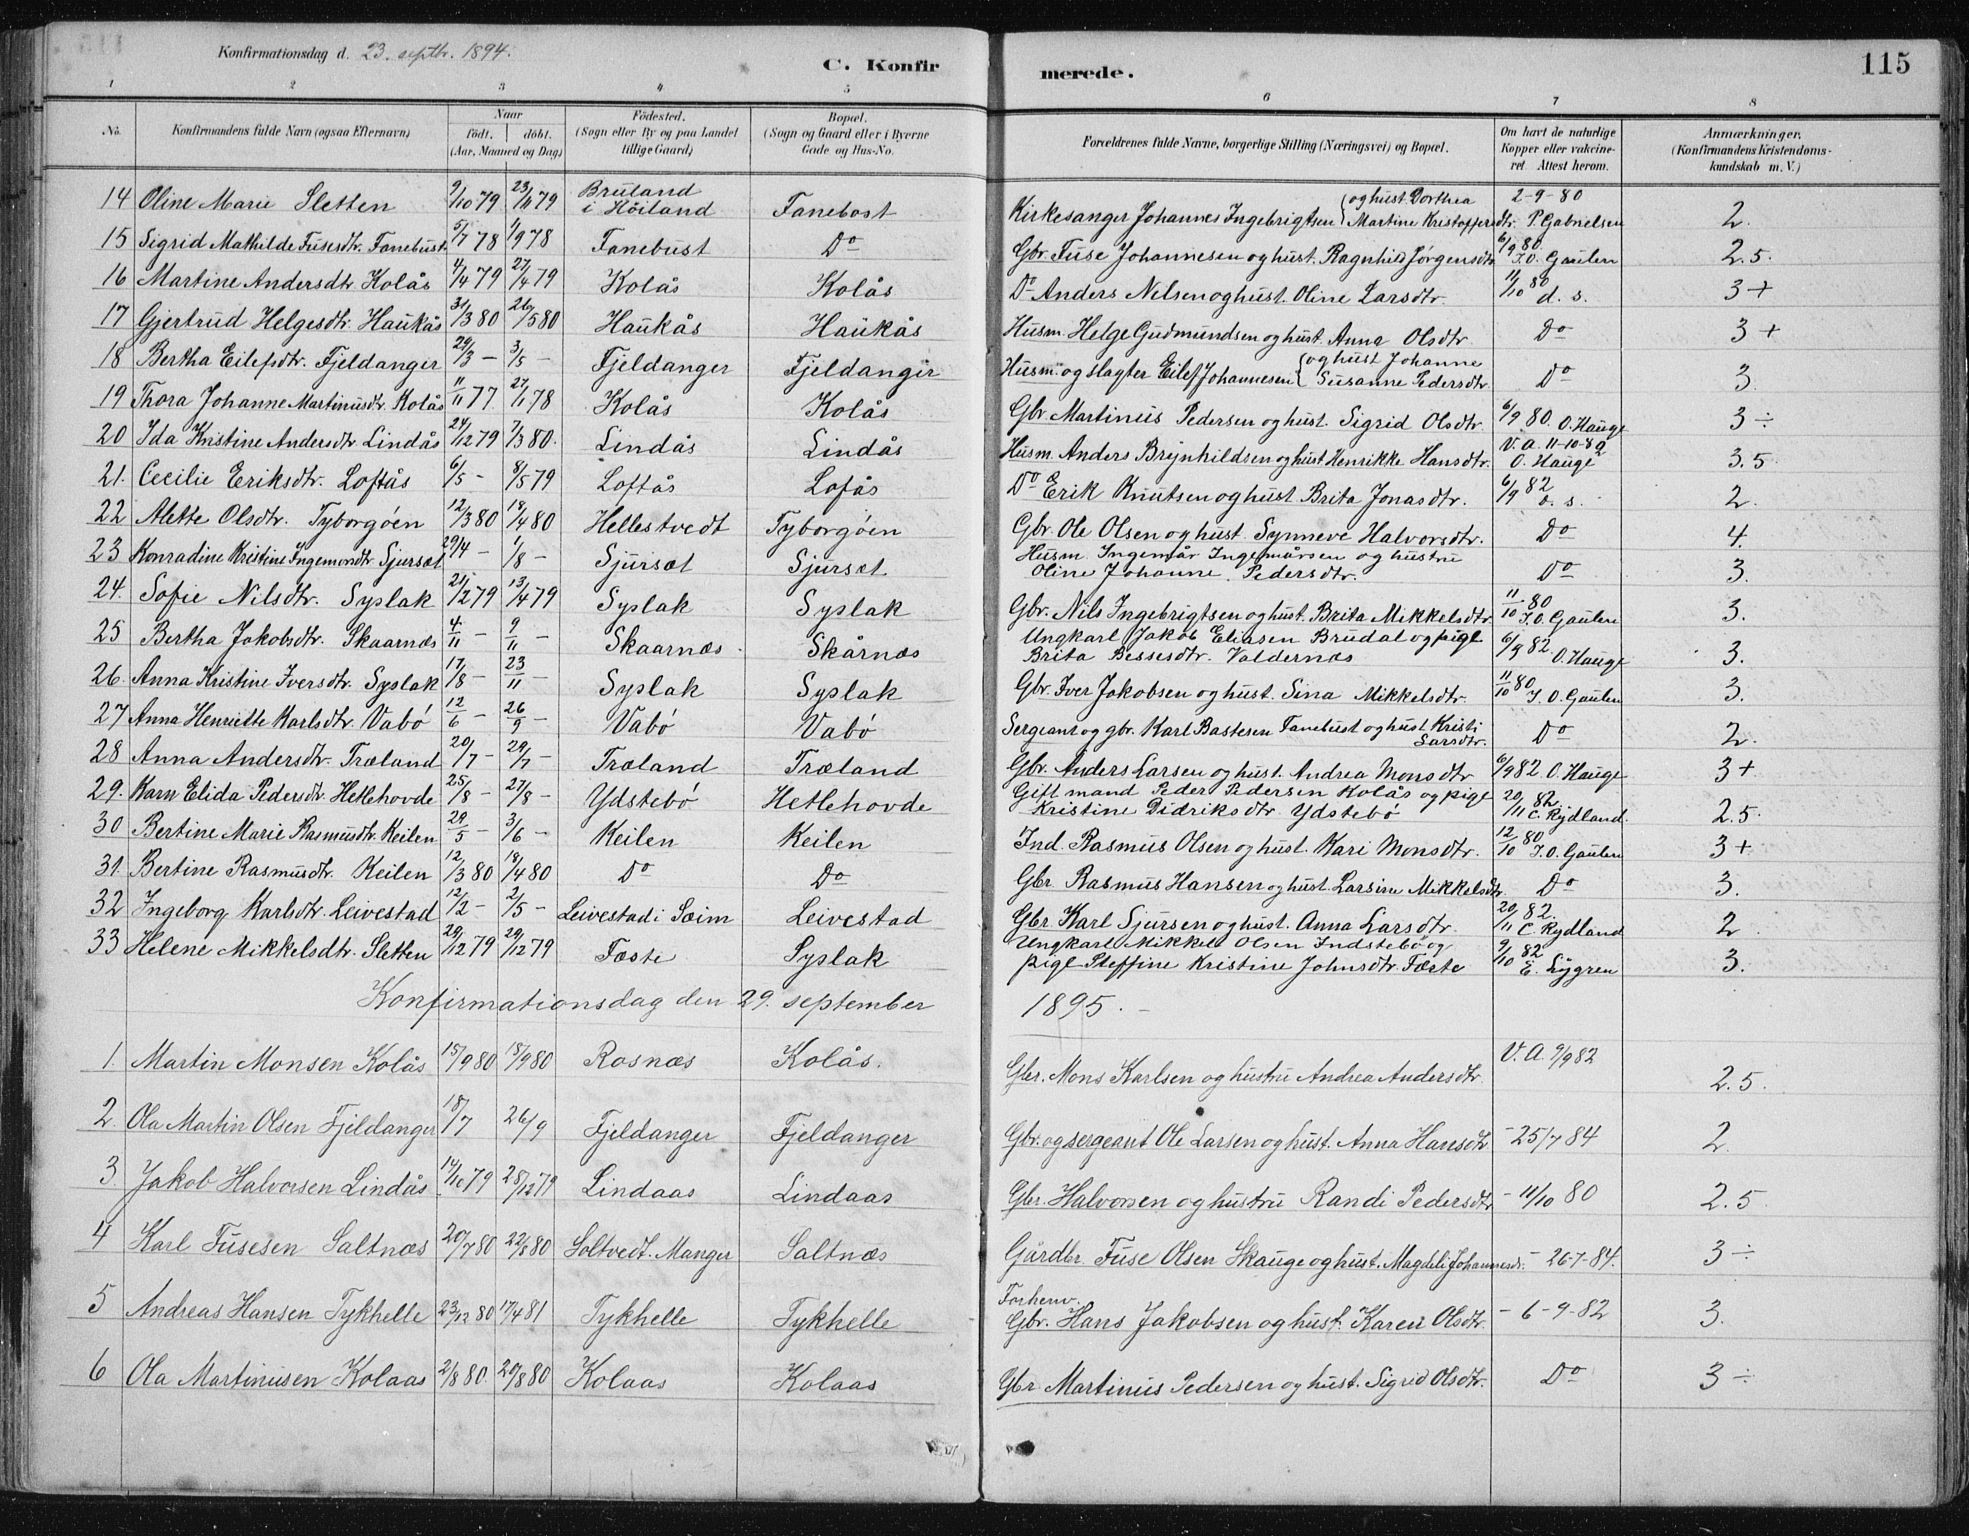 Konfirmationsdag d. 23. septbr. 1894.
C. Konfirmerede.
115
1 2 3 4 5 6 7 8
No. Konfirmandens fulde Navn (ogsaa Efternavn) Naar födt. döbt. (Aar, Maaned og Dag) Födested. (Sogn eller By og paa Landet tillige Gaard) Bopæl. (Sogn og Gaard eller i Byerne Gade og Hus-No. Forældrenes fulde Navne, borgerlige Stilling (Næringsvei) og Bopæl. Om havt de naturlige Kopper eller vakcineret Attest herom. Anmærkninger. (Konfirmandens Kristendomskundskab m. V.)
14 Oline Marie Sletten 9/10 79 23/11 79 Bruland i Höiland Fanebost Kirkesanger Johannes Ingebrigtsen og hust Dorthea Martine Kristoffersdtr. 2-9-80 P. Gabrielsen 2.
15 Sigrid Mathilde Fusesdtr. Fanebust 5/7 78 1/9 78 Fanebust Do Gbr. Fuse Johannesen og hust. Ragnhild Jørgensdtr 6/9 80 J. O. Gaulen 2.5.
16 Martine Andersdtr Kolås 4/4 79 27/4 79 Kolås Kolås Do Anders Nilsen og hust. Oline Larsdtr. 11/10 80 d. s. 3+
17 Gjertrud Helgesdtr. Haukås 31/3 80 26/5 80 Haukås Haukås Husm. Helge Gudmundsen og hust. Anna Olsdtr. Do 3+
18 Bertha Eilefsdtr. Fjeldanger 29/3 – 3/5 – Fjeldanger Fjeldanger Husm. og slagter Eilef Johannesen og hust Johanne Susanne Pedersdtr. Do 3.
19 Thora Johanne Martinusdtr. Kolås 11/11 77 27/1 78 Kolås Kolås Gbr. Martinus Pedersen og hust. Sigrid Olsdtr. 6/9 80. O. Hauge 3 ÷
20 Ida Kristine Andersdtr Lindås 27/12 79 7/3 80. Lindås Lindås Husm. Anders Brynhildsen og hust Henrikke Hansdtr. V. A. 11-10-82 O. Hauge 3.5
21. Cecilie Eriksdtr. Loftås 6/5 – 8/5 79 Loftås Lofås Do Erik Knutsen og hust. Brita Jonasdtr. 6/9 82 d. s. 2.
22 Alette Olsdtr. Tyborgöen 12/3 80 18/4 80 Hellestvedt Tyborgöen Gbr. Ole Olsen og hust. Synneve Halvorsdtr. Do 4.
23 Konradine Kristine Ingemorsdtr Sjursæt 29/4 – 1/8 – Sjursæt Sjursæt Husm. Ingemår Ingemårsen og hustru Oline Johanne Pedersdtr. Do 3.
24. Sofie Nilsdtr. Syslak 21/2 79 13/4 79 Syslak Syslak Gbr. Nils Ingebrigtsen og hust. Brita Mikkelsdtr 11/10 80 J. O. Gaulen 3.
25 Bertha Jakobsdtr. Skaarnæs 4/11 – 9/11 – Skaarnæs Skårnæs Ungkarl Jakob Eliasen Brudal og pige Brita Bessesdtr. Valdernæs 6/9 82 O. Hauge 3.
26. Anna Kristine Iversdtr. Syslak 17/8 – 23/11 – Syslak Syslak Gbr. Iver Jakobsen og hust. Sina Mikkelsdtr. 11/10 80 J. O. Gaulen 3.
27 Anna Henriette Karlsdtr. Vabö 12/6 – 26/9 – Vabö Vabö Sergeant og gbr. Karl Bastesen Fanebust og hust Kristi Larsdtr. Do 2.
28 Anna Andersdtr. Træland 20/7 – 29/7 – Træland Træland Gbr. Anders Larsen og hust. Andrea Monsdtr 6/9 82 O. Hauge 3+
29. Karn Elida Pedersdtr. Hetlehovde 25/8 – 27/8 – Ydstebö Hetlehovde Gift mand Peder Pedersen Kolås og pige Kristine Didriksdtr. Ydstebö 20/11 82. C. Rydland. 2.5.
30 Bertine Marie Rasmusdtr. Keilen 29/5 – 3/6 – Keilen Keilen Ind. Rasmus Olsen og hust. Kari Monsdtr. 12/10 80 J. O. Gaulen 3+
31. Bertine Rasmusdtr. Keilen 12/3 80 18/4 80 Do Do Gbr. Rasmus Hansen og hust. Larsine Mikkelsdtr Do 3.
32 Ingeborg Karlsdtr. Leivestad 12/2 – 2/5 – Leivestad i Sæim Leivestad Gbr. Karl Sjursen og hust. Anna Larsdtr. 20/11 82. C. Rydland 2.
33 Helene Mikkelsdtr. Sletten 29/12 79 29/12 79 Fæste Syslak Ungkarl Mikkel Olsen Indstebö og pige Steffine Kristine Johnsdtr. Fæste 9/10 82 E. Lygren 3.
Konfirmationsdag den 29. september 1895. –
1. Martin Monsen Kolås 15/9 80 18/9 80 Rosnæs Kolås. Gbr. Mons Karlsen og hustru Andrea Andersdtr V. A. 9/9 82 2.5.
2. Ola Martin Olsen Fjeldanger 18/7 26/9 Fjeldanger Fjeldanger Gbr. og sergeant Ole Larsen og hust. Anna Hansdtr – 25/7 84 2.
3. Jakob Halvorsen Lindås 14/10 79 28/12 79 Lindaas Lindaas Gbr. Halvorsen og hustru Randi Pedersdtr – 11/10 80 2.5
4 Karl Fusesen Saltnæs 20/7 80 22/8 80 Soltvedt. Manger Saltnæs Gårdbr. Fuse Olsen Skauge og hust. Magdeli Johannesdr. – 26-7-84. 3 ÷
5 Andreas Hansen Tykhelle 23/12 80 17/4 81 Tykhelle Tykhelle Forhenv. Gbr. Hans Jakobsen og hust. Karen Olsdtr. – 6-9-82 3.
6 Ola Martinusen Kolaas 2/8 80. 29/8 80 Kolaas Kolaas Gbr Martinus Pedersen og hust. Sigrid Olsdtr. Do 3 ÷